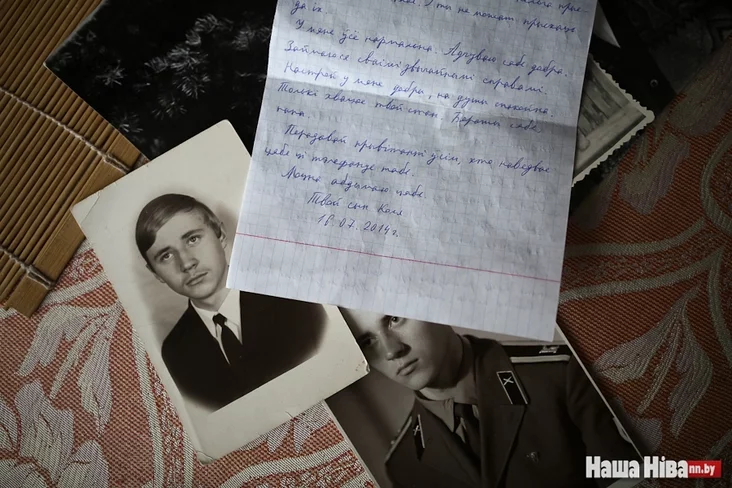 да іх.
У мяне ўсё нармальна. Адчуваю сябе добра.
Займаюся сваімі звычайнымі справамі.
Настрой у мяне добры, на душы спакойна.
Толькі хвалюе твой стан. Беражы сябе
папа.
Перадавай прывітанні ўсім, хто наведвае
цябе ці тэлефануе табе.
Моцна абдымаю цябе.
Твой сын Коля
07. 2014 г.
Наша Ніва nn.by